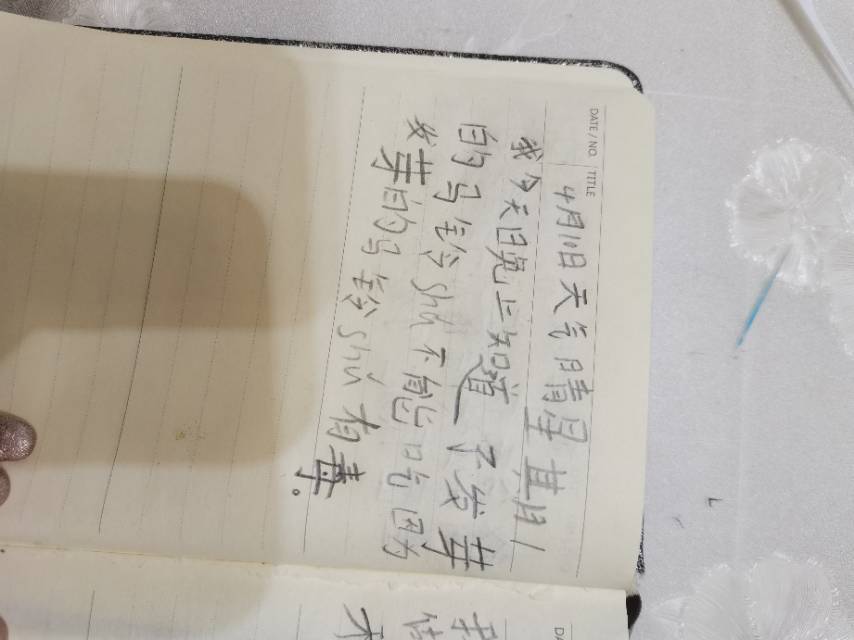 DATE / NO. TITLE
4月10日天气晴星期1
我今天晚上知道了发芽
的马铃shǔ不能吃因为
发芽的马铃shǔ有毒。